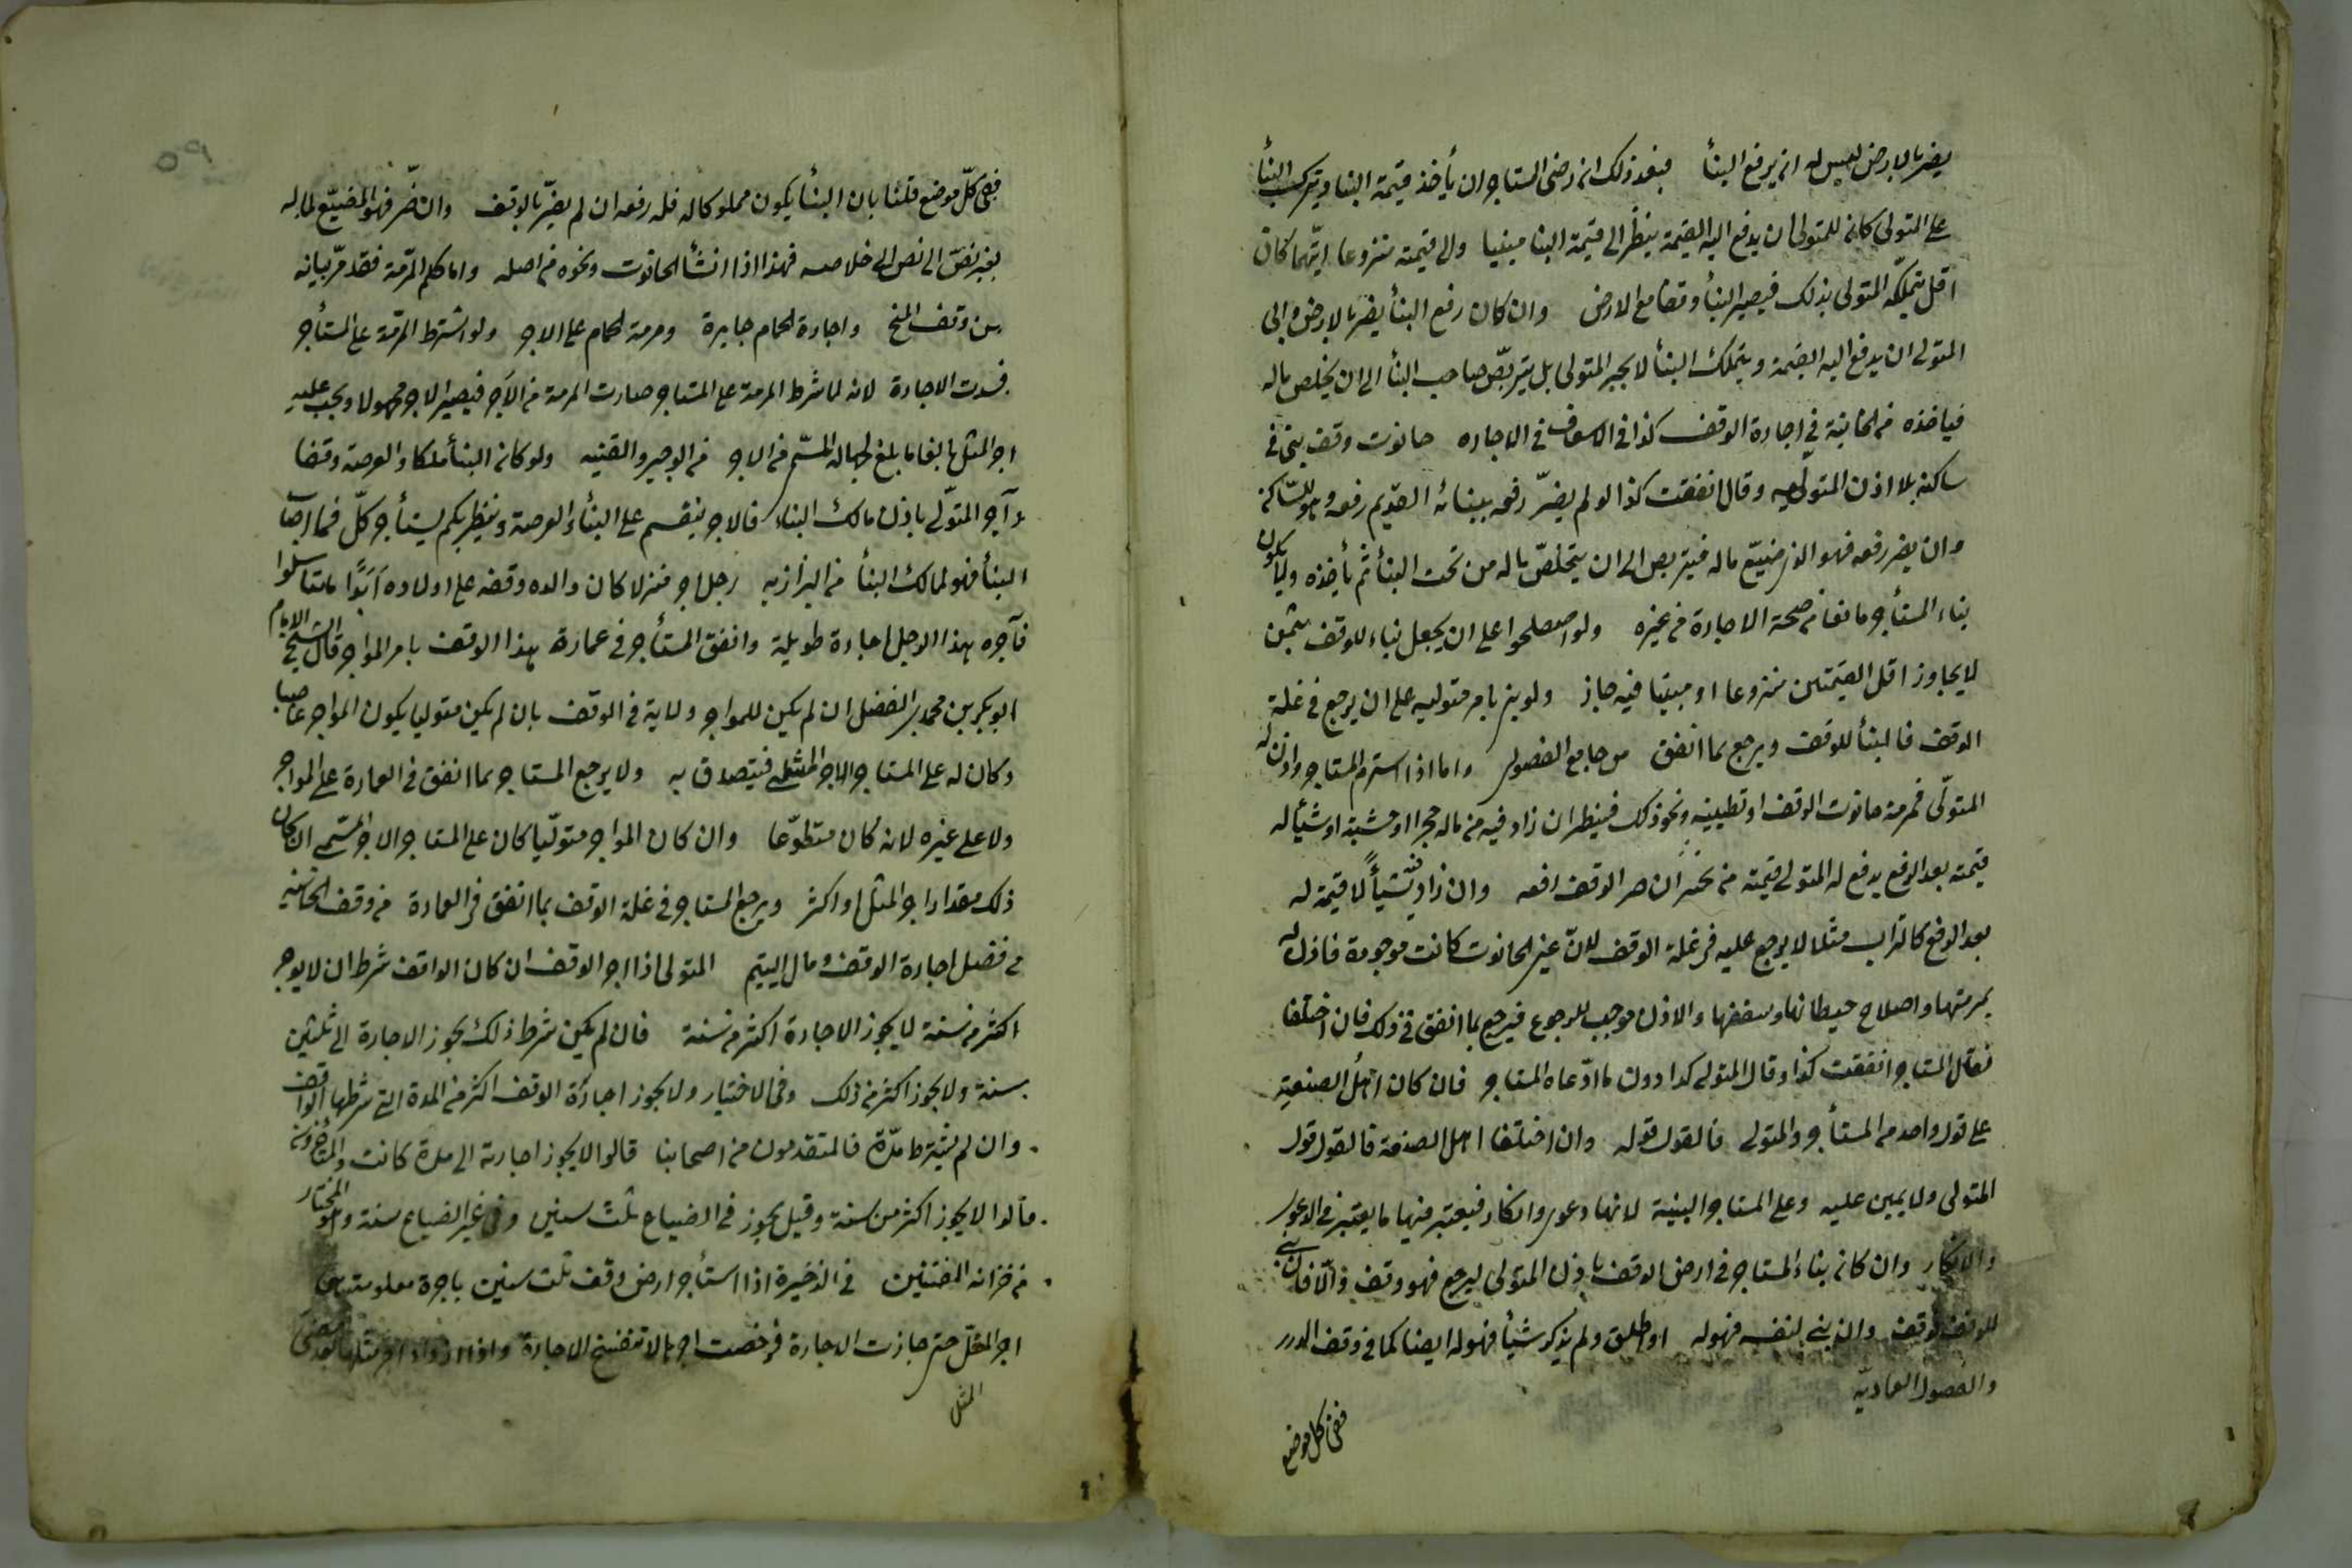 يضر بالارض ليس له ان يرفع البنأ فبعد ذلك ان رضى المستاجر ان يأخذ قيمة البنا ويترك البنأ
على المتولى كان للمتولى ان يدفع اليه القيمة ينظر الى قيمة البنا مبنيا والى قيمته منزوعا ايّهما كان
اقل يتملّكه المتولى بذلك فيصير البنأ وقفا مع الارض وان كان رفع البنأ يضر بالارض وابى
المتولى ان يدفع اليه القيمة ويتملك البنأ لا يجبر المتولى بل يتربّص صاحب البنأ الى ان يخلص ماله
فياخذه من الخانية في اجارة الوقف كذا في الاسعاف في الاجاره حانوت وقف بنى في
ساكنه بلا اذن المتولى وقال انفقت كذا لو لم يضرّ رفعه ببنائه القديم رفعه وهو للساكن
وان يضر رفعه فهو الذى ضيّع ماله فيتربص الى ان يتخلّص ماله من تحت البنأ ثم يأخذه ولا يكون
بناء المستأجر مانعا من صحة الاجارة من غيره ولو اصطلحوا على ان يجعل بناء للوقف بثمن
لا يجاوز اقل القيمتين منزوعا او مبنيا فيه جاز ولو بنى بامر متوليه على ان يرجع في غلة
الوقف فالبنأ للوقف ويرجع بما انفق من جامع الفصولى واما اذا استرم المستاجر واذن له
المتولّى في مرمة حانوت الوقف او تطيينه ونحو ذلك فينظر ان زاد فيه من ماله حجرا او خشبة او شيأ له
قيمة بعد الرفع يدفع له المتولى قيمته من الوقف رفعه وان زاد فيه شيأ لا قيمة له
بعد الرفع كالتراب مثلا لا يرجع عليه في غلة الوقف لانّ عين الحانوت كانت موجودة فاذن له
بمرمتها واصلاح حيطانها وسقفها والاذن موجب للرجوع فيرجع بما انفق في ذلك فان اختلفا
فقال المستاجر انفقت كذا وقال المتولى كذا دون ما ادّعاه المستاجر فان كان اهل الصنعة
على قول واحد من المستأجر والمتولى فالقول قوله وان اختلفا اهل الصنعة فالقول قول
المتولى ولا يمين عليه وعلى المستاجر البينة لانها دعوى وانكار فيعتبر فيها ما يعتبر في الدعوى
والانكار وان كان بناء المستاجر في ارض الوقف باذن المتولى ليرجع فهو وقف والّا فان بنى
للوقف فوقف وان بنى لنفسه فهو له او اطلق ولم يذكر شيأ فهو له ايضا كما في وقف الدرر
والفصول العماديّه
ففى كل موضع
ففى كلّ موضع قلنا بان البنأ يكون مملوكا له فله رفعه ان لم يضرّ بالوقف وان ضّر فهو المضيّع لماله
بغير نصّ الى نص الى خلاصه فهذا اذا انشأ الحانوت ونحوه من اصله واما كلم المرّمة فقد مرّ بيانه
من وقف المنح واجارة الحمام جايرة ومرمة الحمام على الاجر ولو اشترط المرّمة على المستأجر
فسدت الاجارة لانه لما شرط المرمة على المستاجر صارت المرمة من الآجر فيصير الاجر مجهولا ويجب عليه
اجر المثل بالغا ما بلغ لجهالة المسّمى من الاجر من الوجيز والقنيه ولو كان البنأ ملكا والعرصة وقفا
وآجر المتولّى باذن مالك البناء فالاجر ينقسم على البنأ والعرصة وينظر بكم يستأجر كلّ فما اصاب
البنأ فهو لمالك البنأ من البزازيه رجل اجر منزلا كان والده وقفه على اولاده اَبَدًا ما تناسلوا
فآجره هذا الرجل اجارة طويلة وانفق المستأجر في عمارة هذا الوقف بامر المواجر قال الشيخ الامام
ابو بكر بن محمد بن الفضل ان لم يكن للمواجر ولاية في الوقف بان لم يكن متوليا يكون المواجر غاصبا
وكان له على المستاجر الاجر المثلى فيتصدق به ولا يرجع المستاجر بما انفق في العمارة على المواجر
ولا على غيره لانه كان متطوّعا وان كان المواجر متولّيا كان على المستاجر الاجر المسّمى ان كان
ذلك مقدار اجر المثل او اكثر ويرجع المستاجر في غلة الوقف بما انفق في العمارة من وقف الخانيه
من فصل اجارة الوقف ومال اليتيم المتولى اذا اجر الوقف ان كان الواقف شرط ان لا يوجر
اكثر من سنة لا يجوز الاجارة اكثر من سنة فان لم يكن شرط ذلك يجوز الاجارة الى ثلثين
سنة ولا يجوز اكثر من ذلك وفى الاختيار ولا يجوز اجارة الوقف اكثر من المدة التى شرطها الواقف
وان لم يشترط مدّة فالمتقدمون من اصحابنا قالوا لا يجوز اجارته الى مدة كانت والمتأخرون
قالوا لا يجوز اكثر من سنة وقيل يجوز في الضياع ثلث سنين وفى غير الضياع سنة وهو المختار
من خزانة المفتين في الذخيرة اذا استأجر ارض وقف ثلث سنين باجرة معلومة هى
اجر المثل حتى جازت الاجارة فرخصت اجرها لا تنفسخ الاجارة واذا ازداد اجر مثلها بعد مضى
المثل